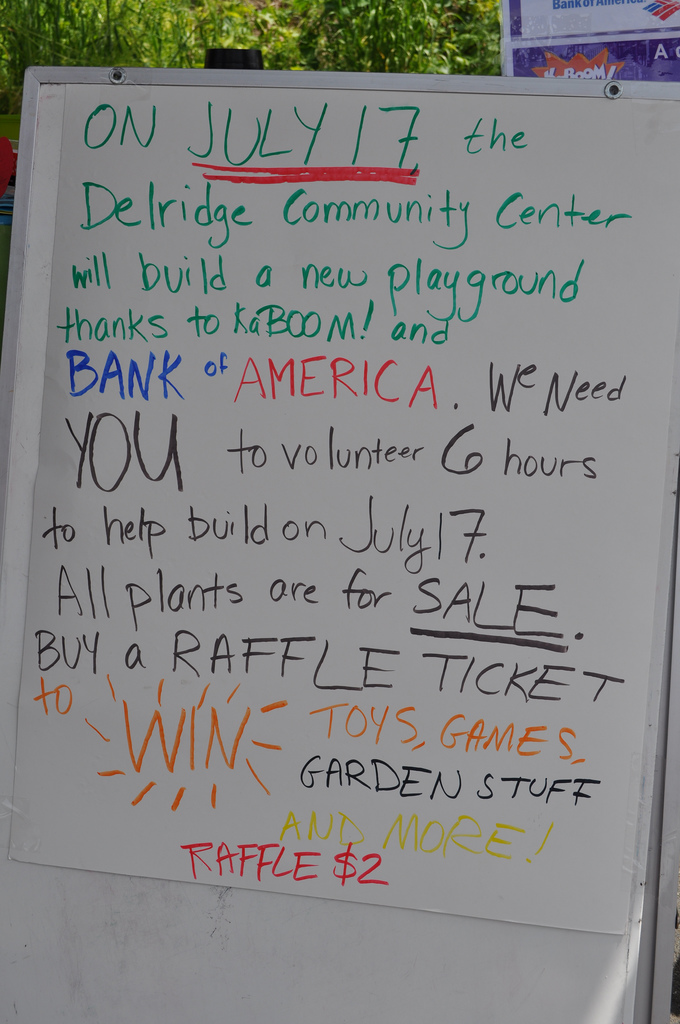 Bank of America
KaBOOM!
ON JULY 17 the
Delridge Community Center
will build a new playground
thanks to KaBOOM! and
BANK of AMERICA. We Need
YOU to volunteer 6 hours
to help build on July 17.
All plants are for SALE.
BUY a RAFFLE TICKET
to WIN TOYS, GAMES,
GARDEN STUFF
AND MORE!
RAFFLE $2